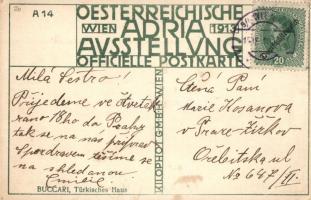 A 14
OESTERREICHISCHE
WIEN ADRIA 1913
AUSSTELLUNG
OFFICIELLE POSTKARTE
20
Milá Sestro!
Přijedeme ve čtvrtek
ráno 18ho do Prahy
tak se na nás připrav
S pozdravem těšíme se
na shledanou
Emilie
BUCCARI, Türkisches Haus
KILOPHOT G.M.B.H. WIEN
Ctěná Paní
Marie Kosanova
v Praze-Žižkov
Orebitská ul
No 647/II.